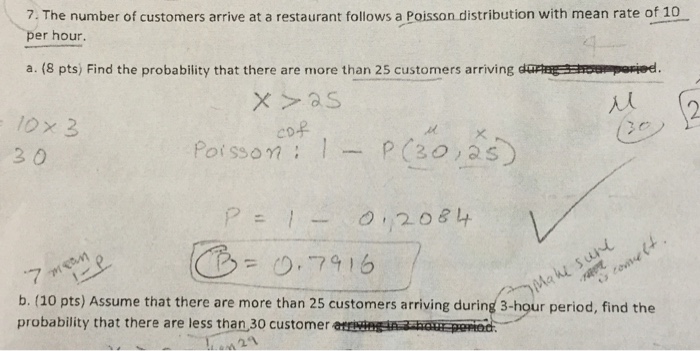 7. The number of customers arrive at a restaurant follows a Poisson distribution with mean rate of 10
per hour.
a. (8 pts) Find the probability that there are more than 25 customers arriving during 3-hour period.
X > 25
10 x 3
30
μ
30
2
cdf
μ x
Poisson : 1 - P(30, 25)
P = 1 - 0.2084
B = 0.7916
7 mean
1-P
Make sure
is correct.
b. (10 pts) Assume that there are more than 25 customers arriving during 3-hour period, find the
probability that there are less than 30 customer arriving in 3-hour period.
29